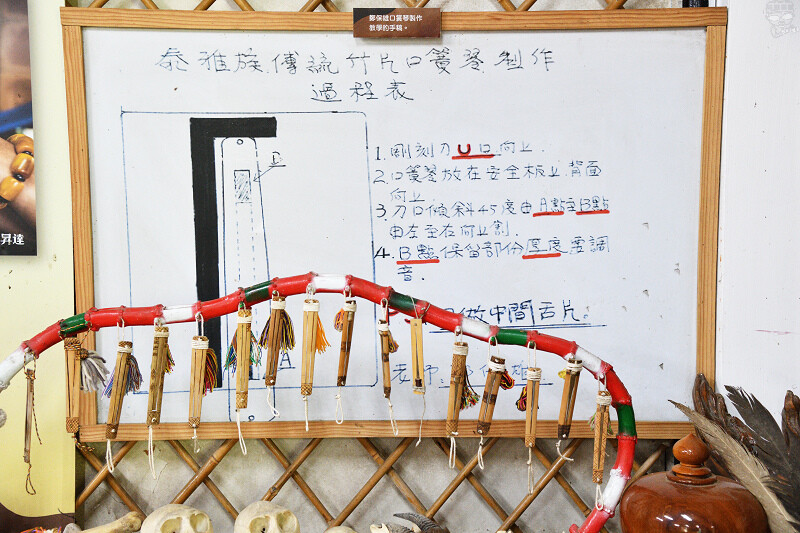 鄭保雄口簧琴製作
教學的手稿。
泰雅族傳統竹片口簧琴製作
過程表
1. 剛刻刀U口向上.
2. 口簧琴放在安全板上.背面
向上.
3. 刀口傾斜45度由A點至B點
由左至右向上割.
4. B點保留部份厚度.要調
音.
B
做中間舌片。
A
老師:
昇達